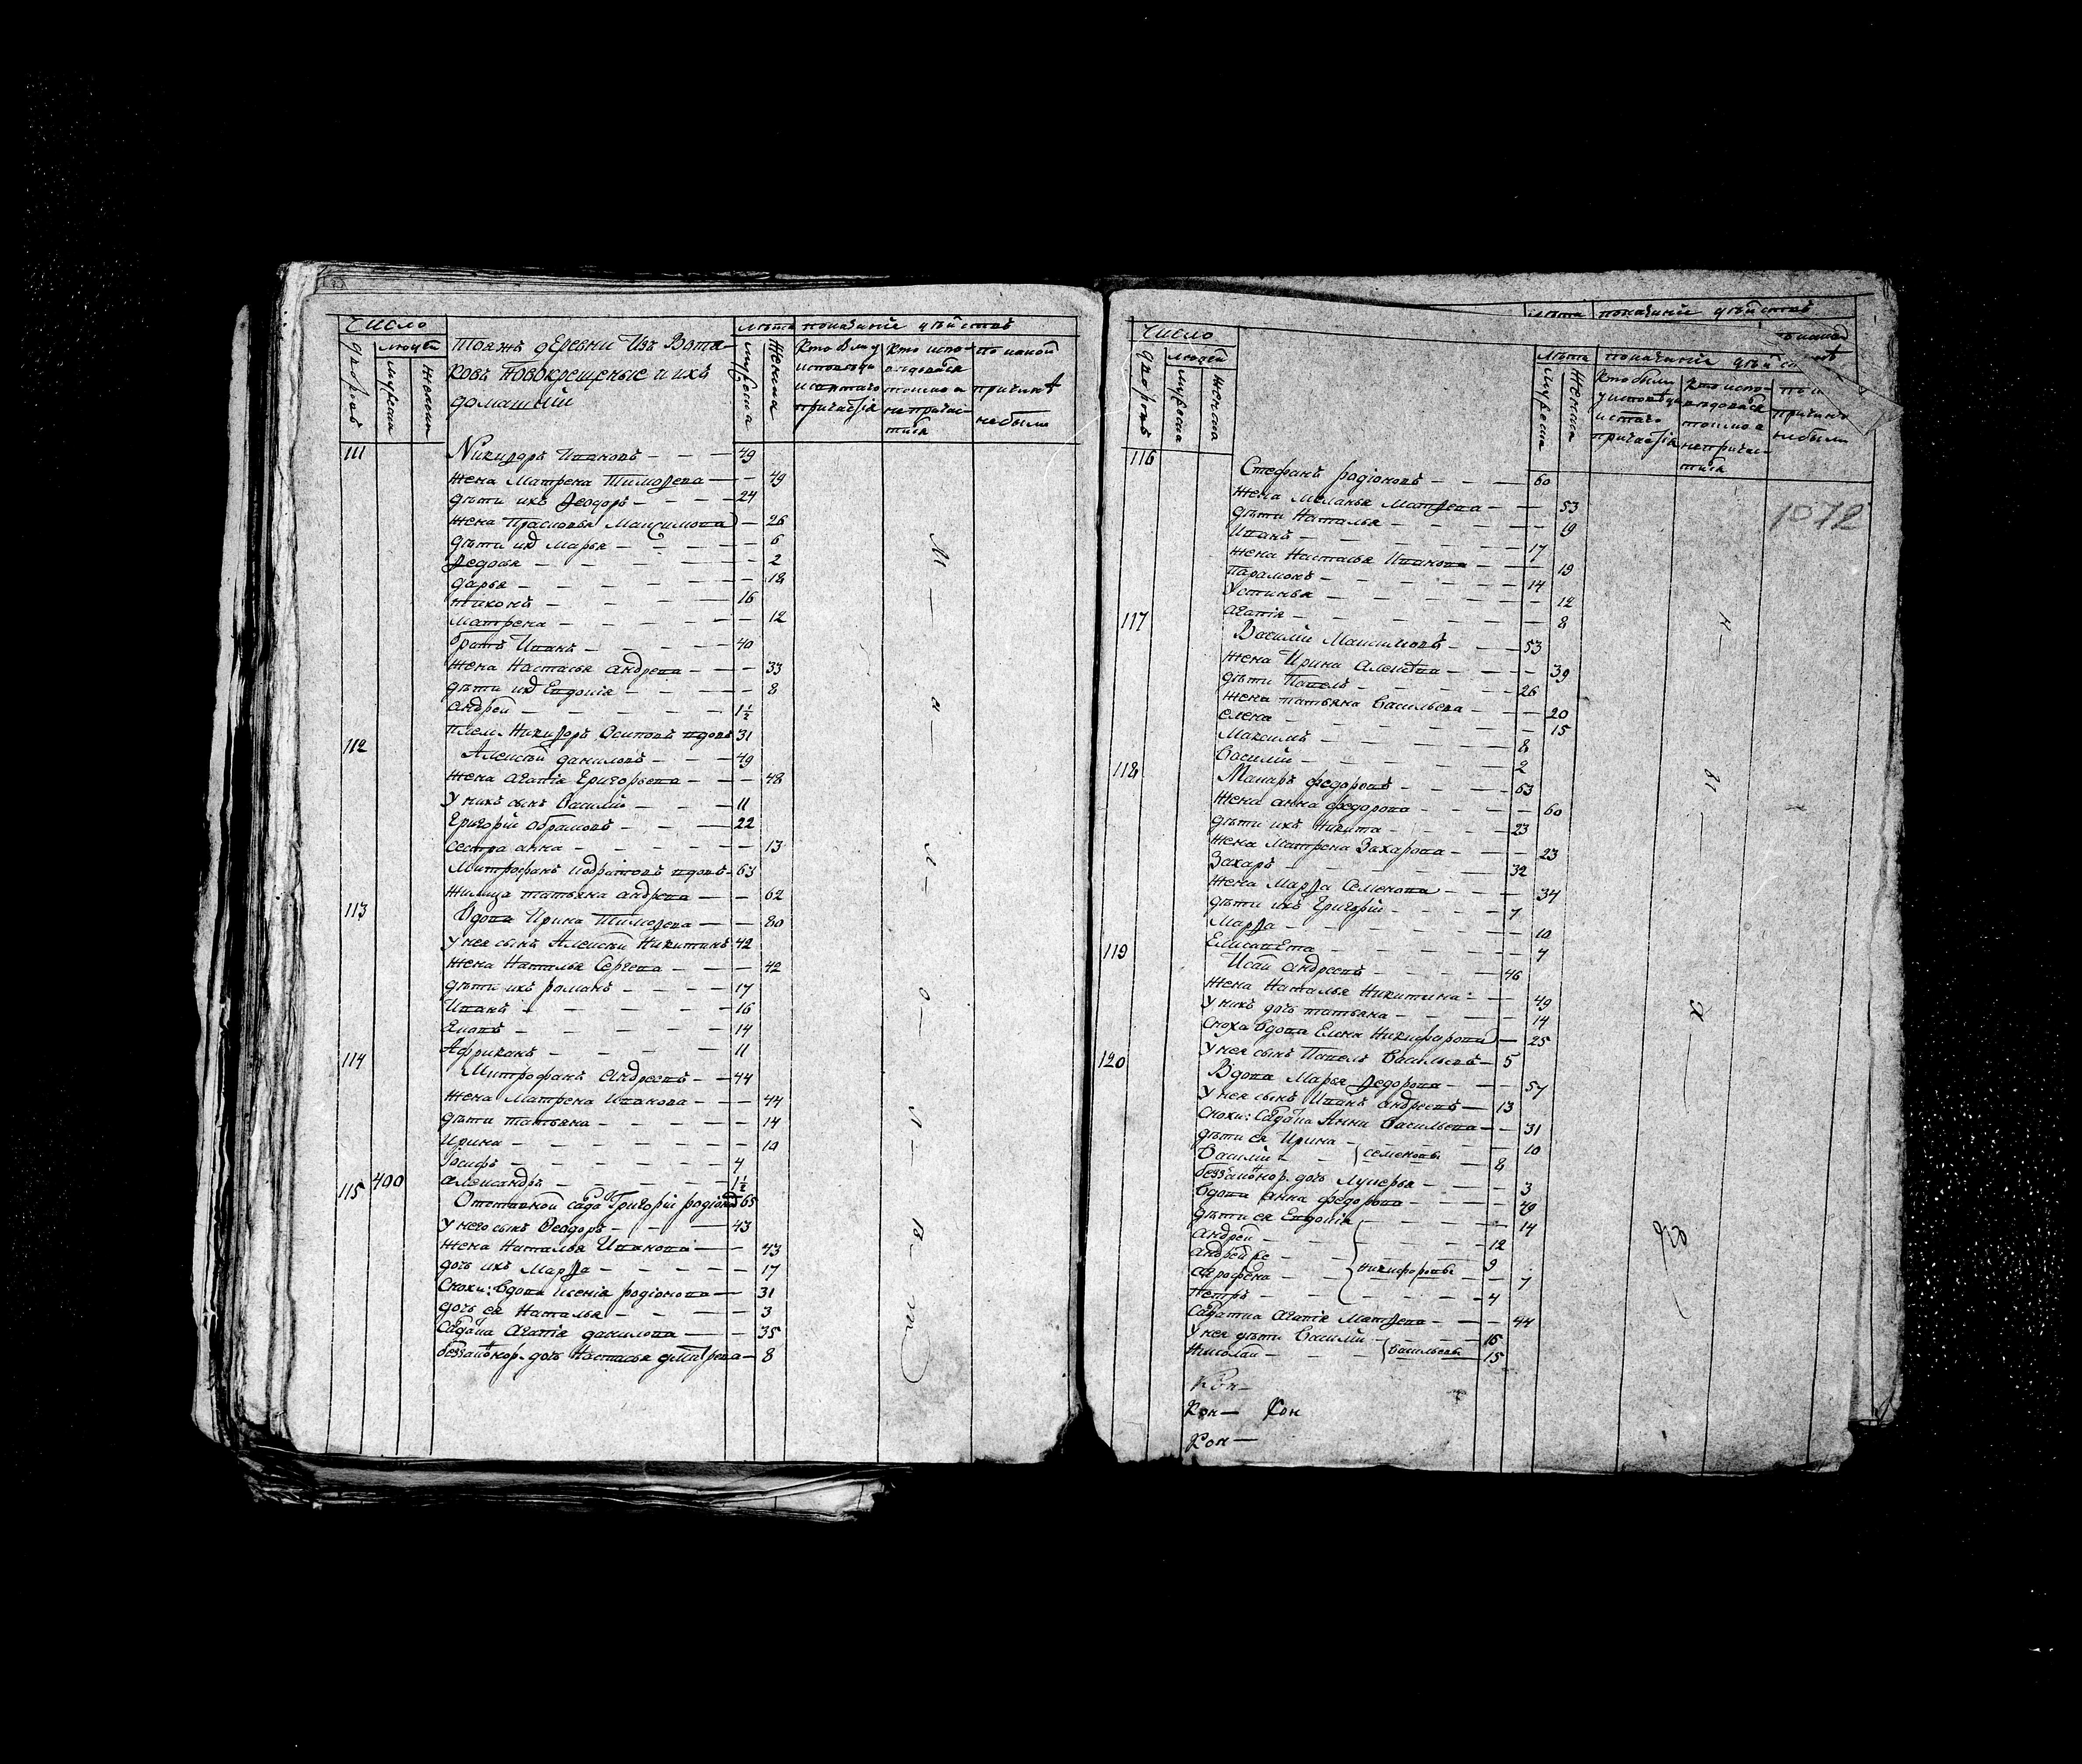 Число
лѣта показаніе дѣйствъ
дворовъ
людей
мужеска
женска
Тояжъ деревни Изъ Вотя-
ковъ Новокрещеные и ихъ
домашніи
мужеска
женска
Кто были
у исповѣди
и святаго
причастія
Кто испо-
вѣдовался
токмо а
не причас-
тился
по какой
причинѣ
не были
111 Никиѳоръ Ивановъ — 49
жена Матрена Тимоѳева — 49
дѣти ихъ Ѳеодоръ — 24
жена Прасковья Максимова — 26
дѣти ихъ Марья — 6
Ѳедосья — 2
дарья — 18
Никонъ — 16
Матрена — 12
братъ Иванъ — 40
жена Настасья андреева — 33
дѣти ихъ Евдокія — 8
андрей — 1½
плем. Никиѳоръ Осиповъ вдовъ 31
112 Алексѣй даниловъ — 49
жена агапія Григорьева — 48
у нихъ сынъ Василій — 11
Григорій абрамовъ — 22
сестра анна — 13
Митрофанъ вдовъ — 63
татьяна андреева — 62
113 Вдова Ирина Тимоѳеева — 80
у нея сынъ Алексѣй Никитинъ 42
жена Наталья Сергеева — 42
дѣти ихъ романъ — 17
Иванъ — 16
Яковъ — 14
Африканъ — 11
114 Митрофанъ Андреевъ — 44
жена Матрена Иванова — 44
дѣти татьяна — 14
Ирина — 10
Іосифъ — 4
400 александръ — 1½
115 Отставной салдатъ Григорій родіоновъ 65
у него сынъ Ѳеодоръ — 43
жена Наталья Иванова — 43
дочь ихъ Марѳа — 17
снохи: вдова Ксенія родіонова — 31
дочь ея Наталья — 3
Салдатка Агапія данилова — 35
беззаконнор. дочь Настасья дмитрева — 8
Число
лѣта показаніе дѣйствъ
дворовъ
людей
мужеска
женска
лѣта показаніе
мужеска
женска
Кто были
у исповѣди
и святаго
причастія
Кто испо-
вѣдовался
токмо а
не причас-
тился
причинѣ
не были
1072
116 Стефанъ родіоновъ — 60
жена Меланья Матѳеева — 53
дѣти Наталья — 19
Иванъ — 17
жена Наталья Иванова — 19
Парамонъ — 14
Устинья — 12
агапія — 8
117 Василій Максимовъ — 53
жена Ирина алексѣева — 39
дѣти Павелъ — 26
жена татьяна Васильева — 20
елена — 15
Максимъ — 8
Василій — 2
118 Макаръ федоровъ — 63
жена анна федорова — 60
дѣти ихъ Никита — 23
жена Матрена Захарова — 23
Захаръ — 32
жена Марѳа Семенова — 34
дѣти ихъ Григорій — 7
Марѳа — 10
Елисавета — 7
119 Исай андреевъ — 46
жена Наталья Никитина — 49
у нихъ дочь татьяна — 14
сноха вдова Елена Никифорова — 25
у нея сынъ Павелъ Васильевъ — 5
120 Вдова Марья Ѳедорова — 57
у нея сынъ Иванъ андреевъ — 13
снохи: Салдатка Анна Васильева — 31
дѣти ея Ирина — 10
Василій — семеновы — 8
беззаконнор. дочь Лукерья — 3
вдова анна федорова — 49
дѣти ея Евдокія — 14
андрей — 12
андрей же — 9
агрофена — никифоровы — 7
Петръ — 4
Салдатка агапія Матѳеева — 44
у нея дѣти Василій — 16
Николай — Васильевы — 15
Кон —
Кон — Кон
Кон —